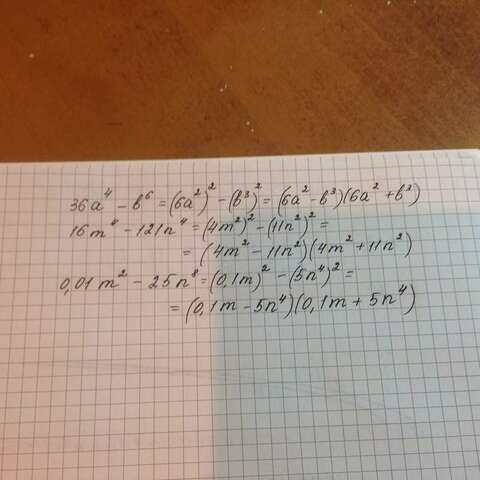 36a⁴ - b⁶ = (6a²)² - (b³)² = (6a² - b³)(6a² + b³)
16m⁴ - 121n⁴ = (4m²)² - (11n²)² =
= (4m² - 11n²)(4m² + 11n²)
0,01m² - 25n⁸ = (0,1m)² - (5n⁴)² =
= (0,1m - 5n⁴)(0,1m + 5n⁴)